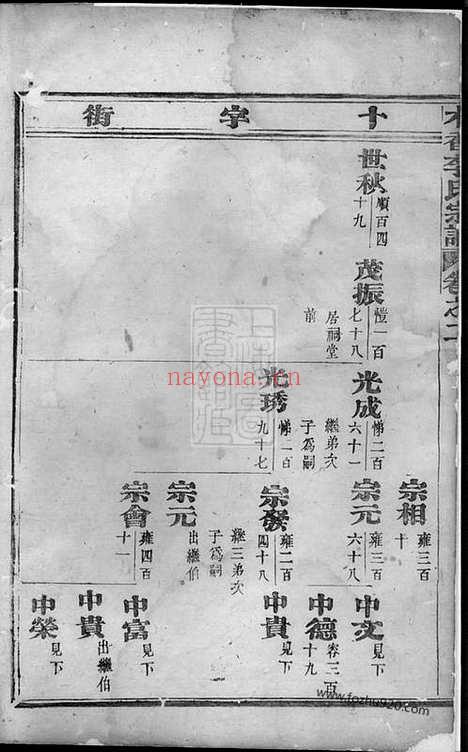 李氏宗譜
卷之二
十字街
世秋
順百四
十九
茂振
愷一百
七十八
居祠堂
前
光成
悌二百
六十一
繼弟次
子爲嗣
光琇
悌二百
九十七
宗相
雍三百
十
宗元
雍三百
六十八
宗發
雍二百
四十八
繼三弟次
子爲嗣
宗元
出繼伯
宗會
雍四百
十一
中文
見下
中德
容三百
十九
中貴
見下
中富
見下
中貴
出繼伯
中榮
見下
nayona.cn
www.fozhu920.com